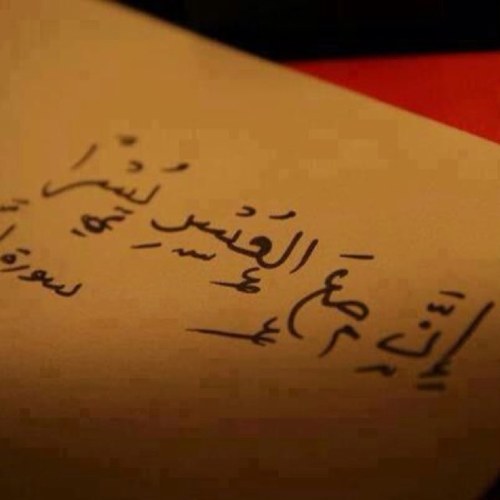 إِنَّ مَعَ الْعُسْرِ يُسْرًا
سورة